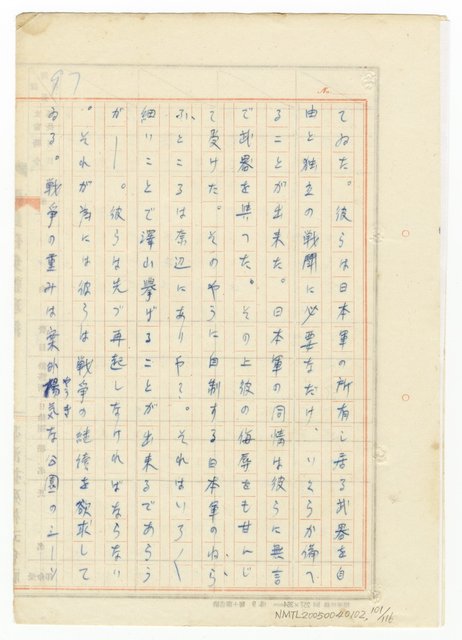 97
No.
てゐた。彼らは日本軍の所有し居る武器を自
由と独立の戦闘に必要なだけ、いくらか備へ
ることが出来た。日本軍の同情は彼らに無言
で武器を与へた。その上彼の侮辱をも甘んじ
て受けた。そのやうに自制する日本軍のねら
ふところは奈辺にありや?。それはいろ〳〵
細いことで澤山擧げることが出来るであらう
が——。彼らは先づ再起しなければならない
。それが為には彼らは戦争の継続を欲求して
ゐる。戦争の重みは案外陽気やうきな公園のシーソ
NMTL20050040102, 101/116